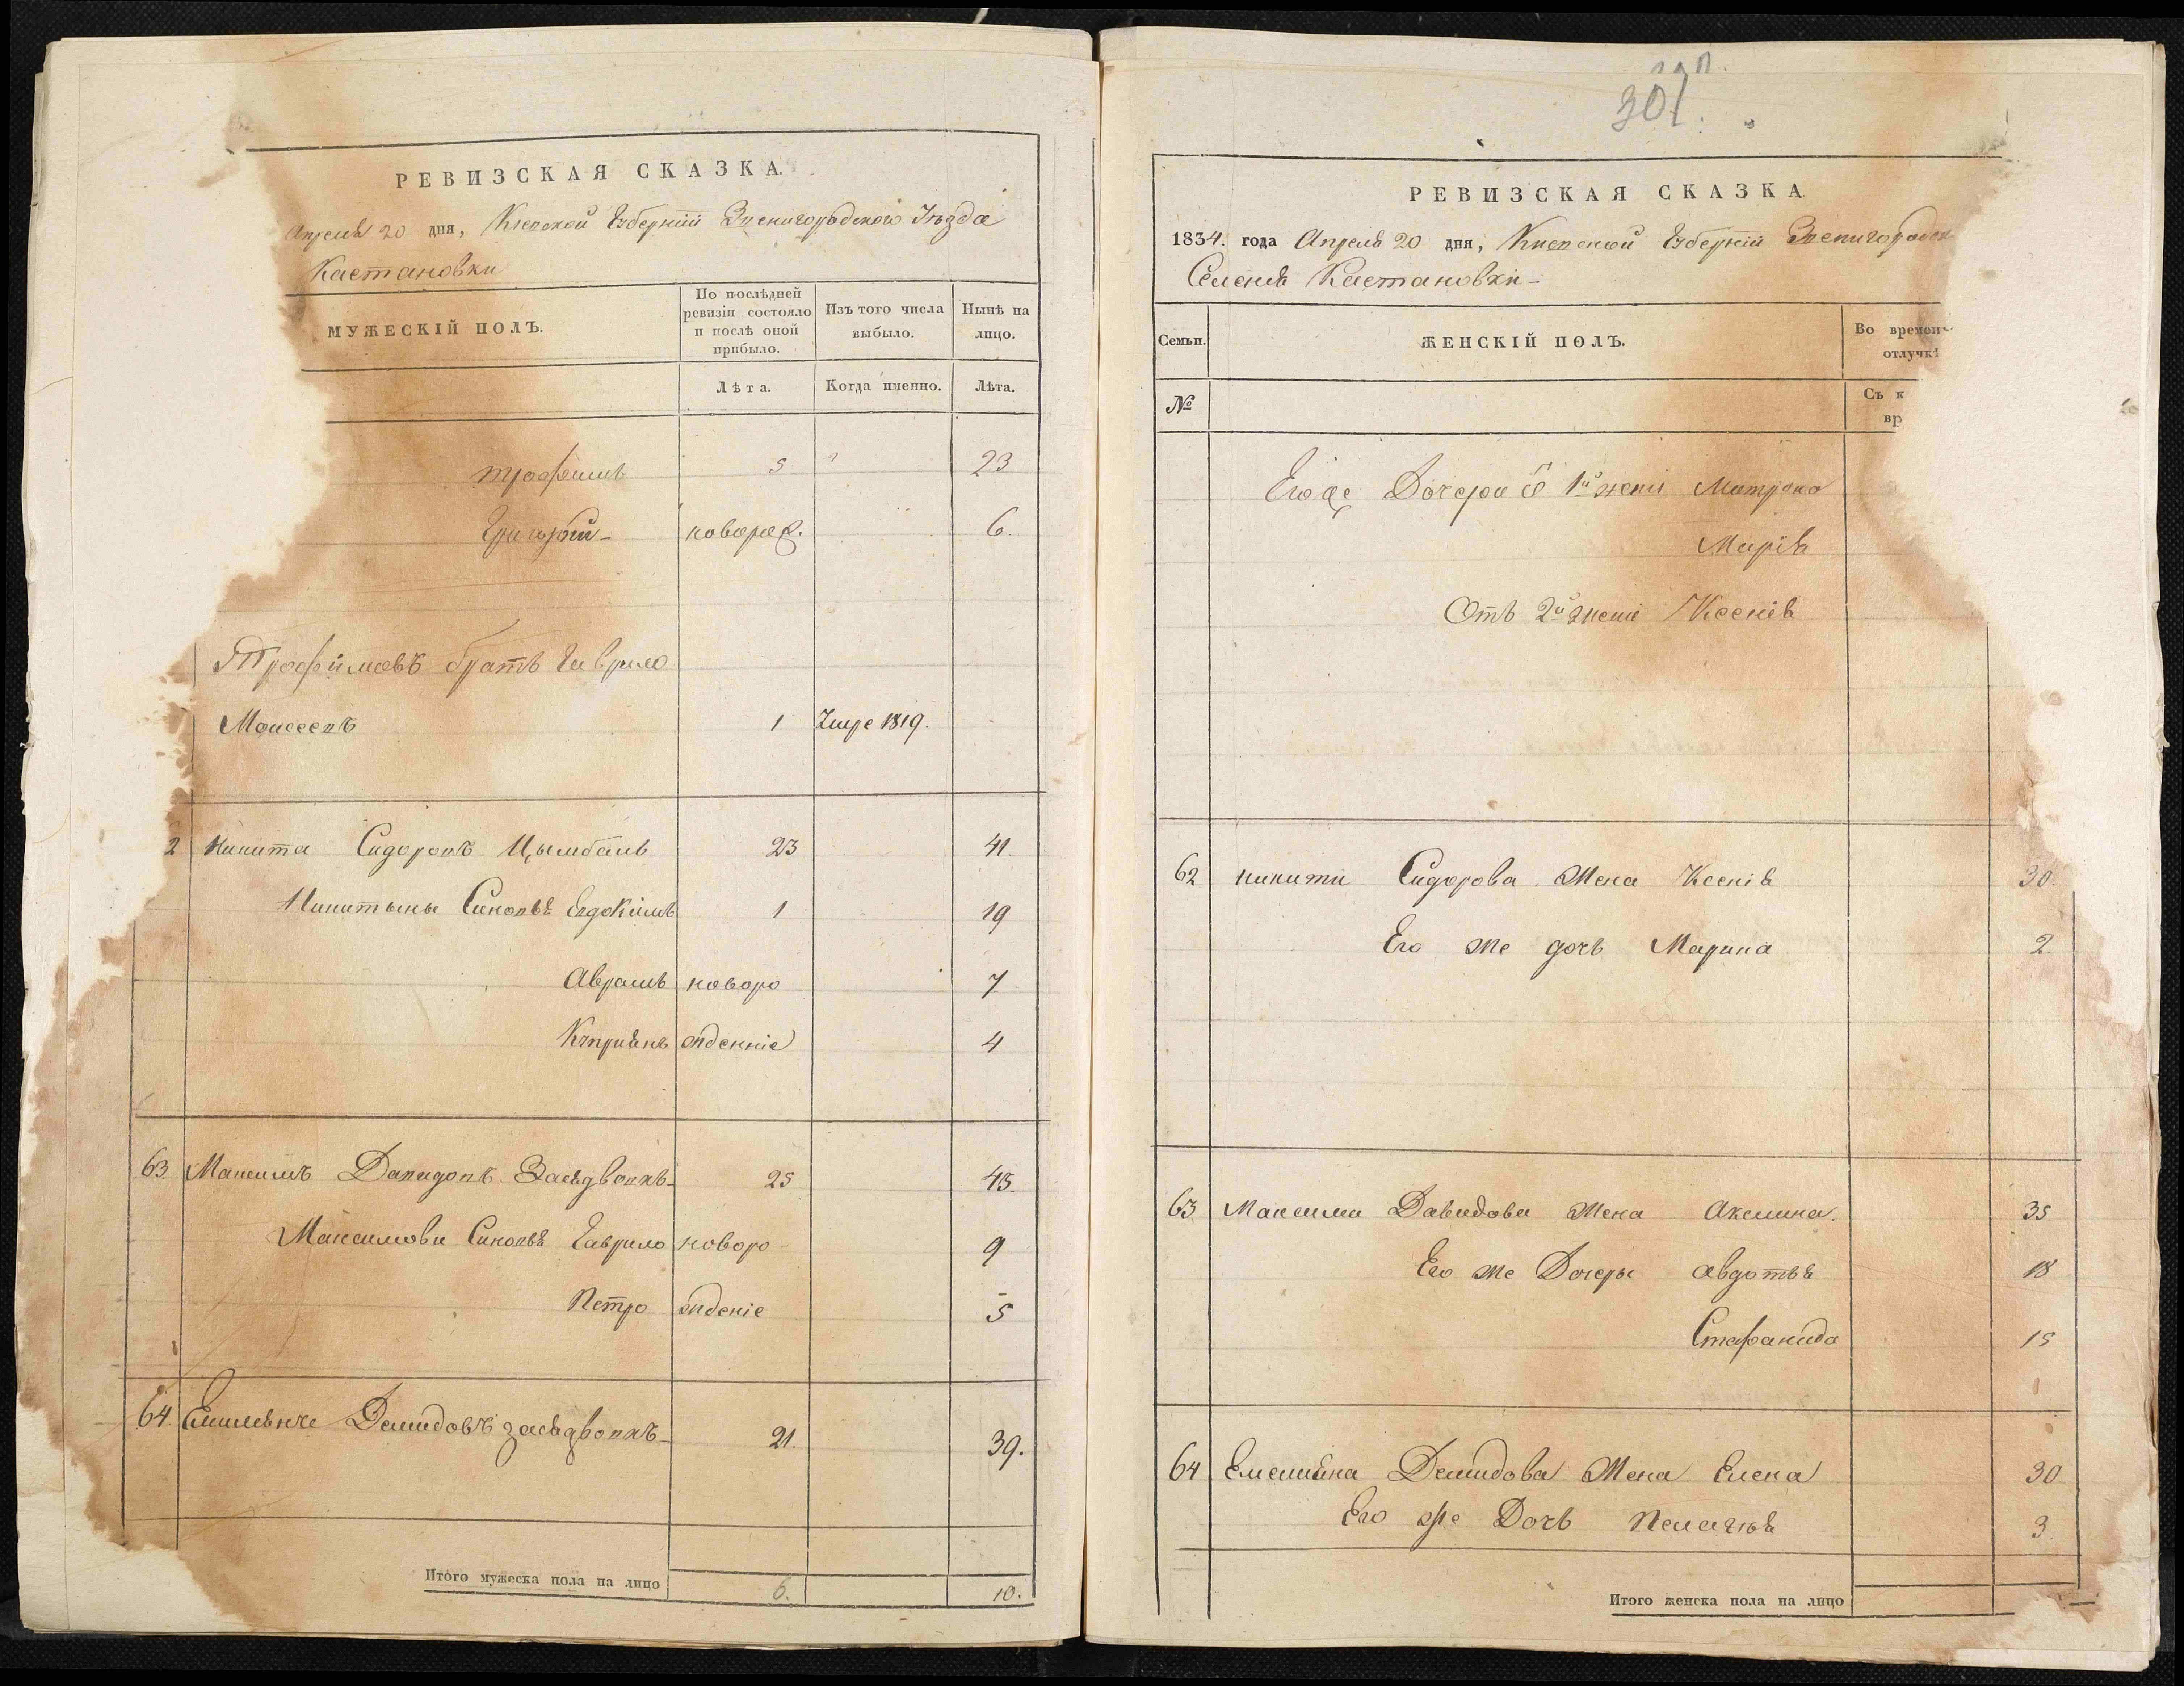 РЕВИЗСКАЯ СКАЗКА.
Апреля 20 дня, Киевской Губернии Звенигородского Уѣзда
Кастановки
МУЖЕСКІЙ ПОЛЪ.
По послѣдней ревизіи состояло и послѣ оной прибыло.
Изъ того числа выбыло.
Нынѣ на лицо.
Лѣта.
Когда именно.
Лѣта.
трофимъ 5 23
Григорій новорож. 6.
Трофимовъ братъ Гаврило
Моисеевъ 1 Умре 1819.
2 никита Сидоровъ Цымбалъ 23 41.
Никитины Синовья Евдокимъ 1 19
Аврамъ новоро 7
Киприянъ жденніе 4
63 Максимъ Давидовъ 25 43.
Максимови Синовья Гаврило новоро 9
Петро жденіе 5
64 Демидовъ 21. 39.
Итого мужеска пола на лицо 6. 10.
301.
РЕВИЗСКАЯ СКАЗКА
1834. года Апреля 20 дня, Киевской Губерніи Звенигородск
Селенія Кастановки-
Семьи.
ЖЕНСКІЙ ПОЛЪ.
Во времен
отлучкѣ
№
Съ к
вр
Его же Дочери 1й жени Матрона
Марія
Отъ 2й жени Ксенія
62 никити Сидорова Жена Ксенія 30.
Его же дочь Марина 2
63 Максима Давидова Жена Акелина. 35
Его же Дочеры Авдотья 18
Стефанида 15
64 Емелияна Демидова Жена Елена 30
Его же Дочь Пелагія 3.
Итого женска пола на лицо